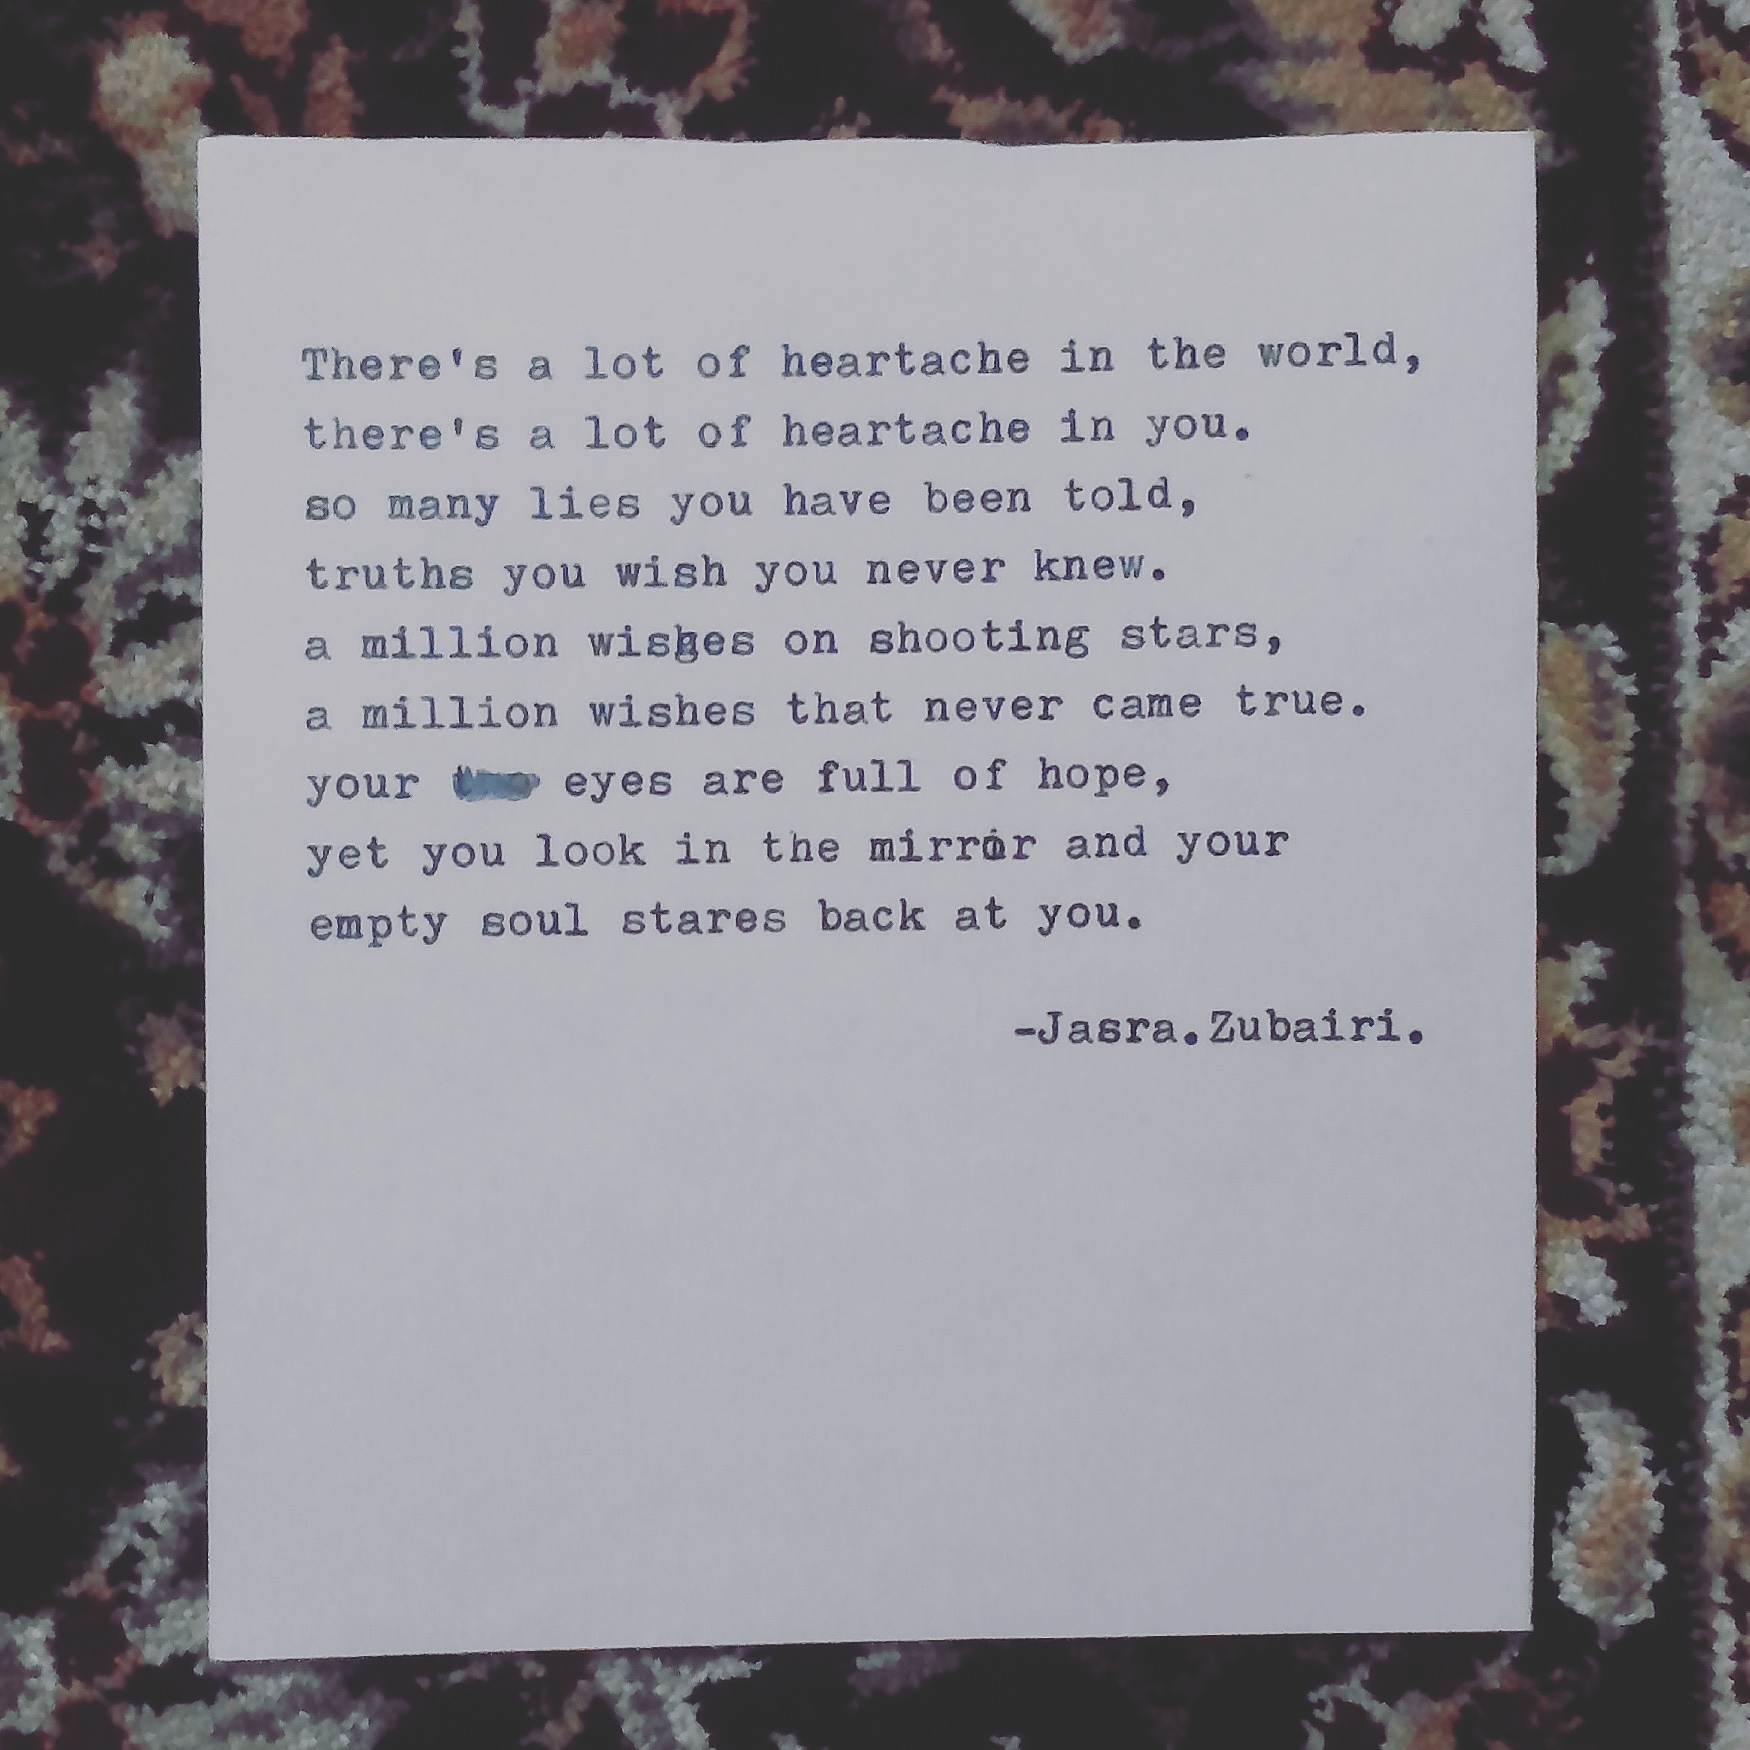 There's a lot of heartache in the world,
there's a lot of heartache in you.
so many lies you have been told,
truths you wish you never knew.
a million wishes on shooting stars,
a million wishes that never came true.
your eyes are full of hope,
yet you look in the mirror and your
empty soul stares back at you.
-Jasra.Zubairi.